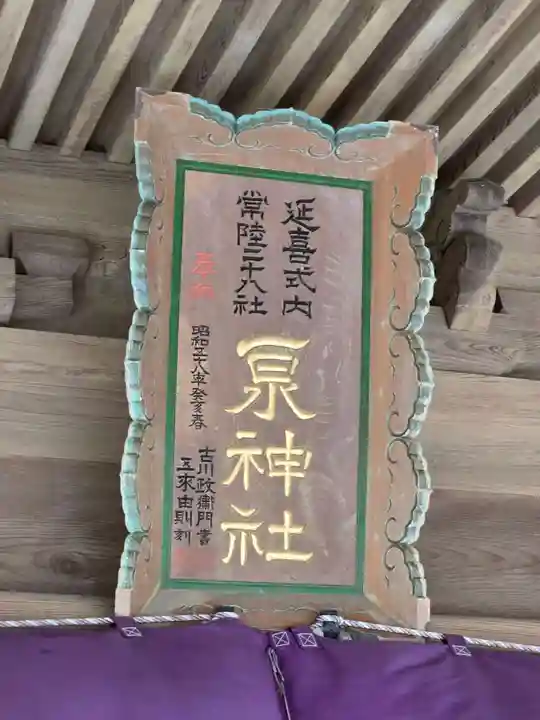 延喜式内
常陸二十八社
泉神社
昭和五十八年癸亥春
古川政衛門書
五來由則刻